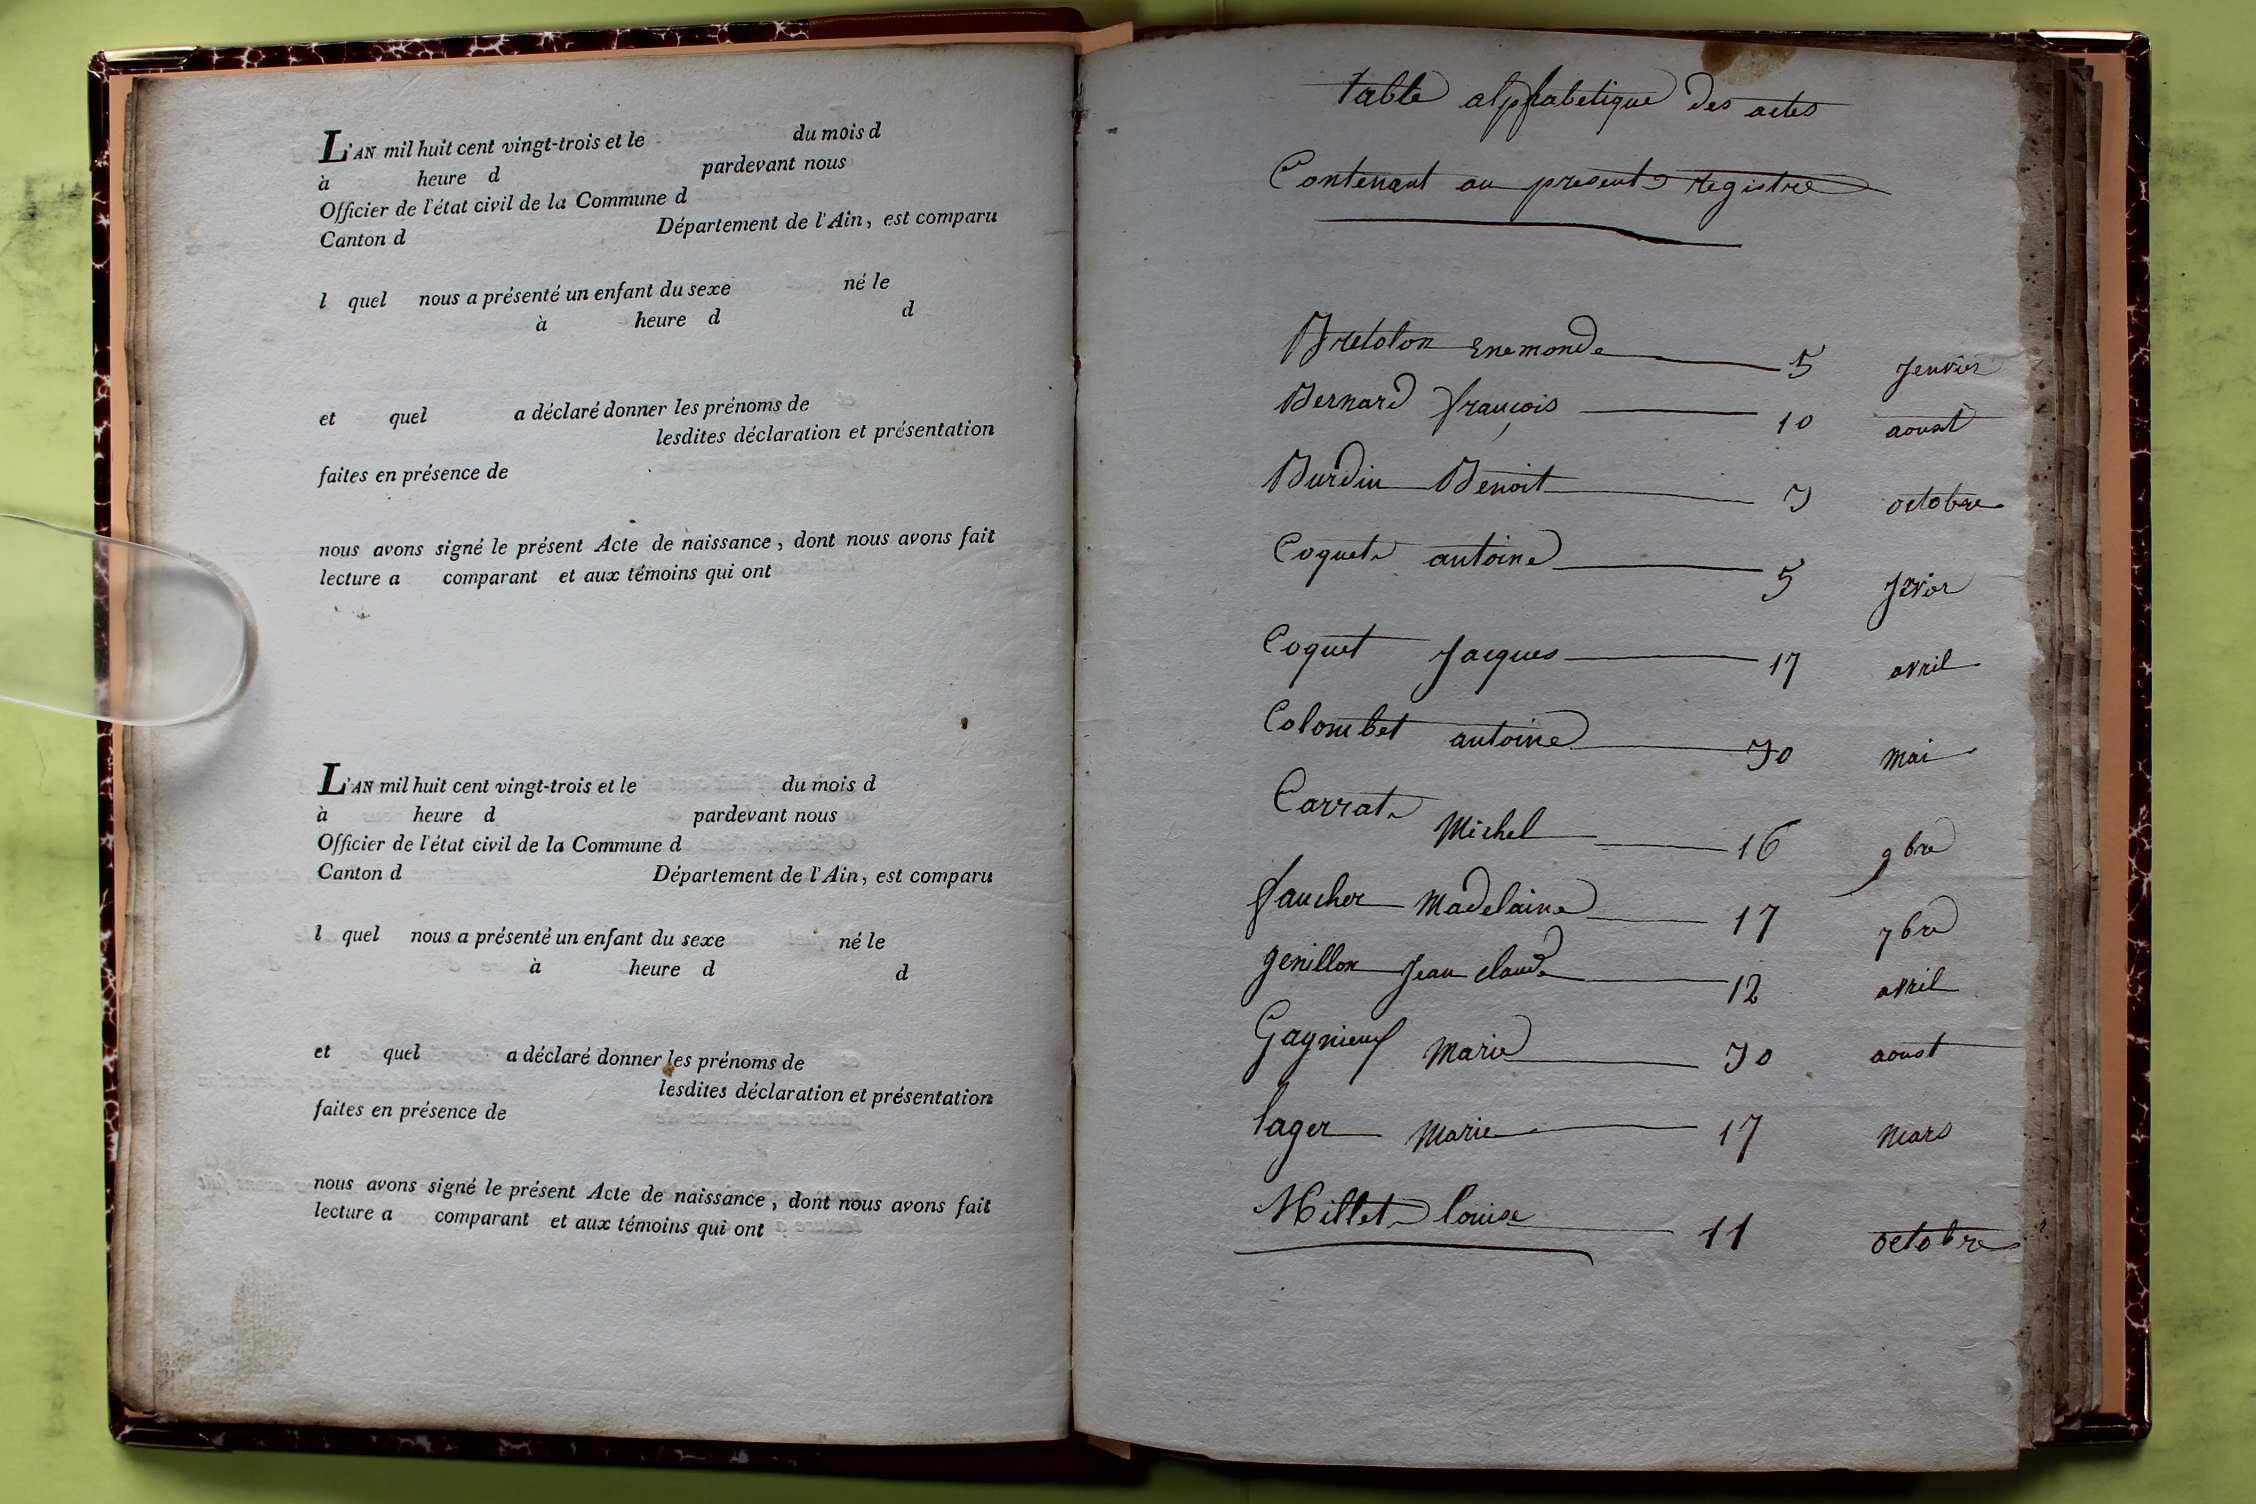 L'AN mil huit cent vingt-trois et le du mois d
à heure d pardevant nous
Officier de l'état civil de la Commune d
Canton d Département de l'Ain, est comparu
l quel nous a présenté un enfant du sexe né le
à heure d d
et quel a déclaré donner les prénoms de
lesdites déclaration et présentation
faites en présence de
nous avons signé le présent Acte de naissance, dont nous avons fait
lecture a comparant et aux témoins qui ont
L'AN mil huit cent vingt-trois et le du mois d
à heure d pardevant nous
Officier de l'état civil de la Commune d
Canton d Département de l'Ain, est comparu
l quel nous a présenté un enfant du sexe né le
à heure d d
et quel a déclaré donner les prénoms de
lesdites déclaration et présentation
faites en présence de
nous avons signé le présent Acte de naissance, dont nous avons fait
lecture a comparant et aux témoins qui ont
table alphabetique des actes
Contenant au present registre
Bretolon Enemonde 5 Jenvier
Bernard françois 10 aoust
Burdin Benoit 3 octobre
Coquet antoine 5 Jrvier
Coquet Jacques 17 avril
Colombet antoine 30 mai
Carrat Michel 16 9bre
faucher Madelaine 17 7bre
genillon Jean claude 12 avril
Gagnieux Marie 30 aoust
lager Marie 17 mars
Millet louise 11 octobre